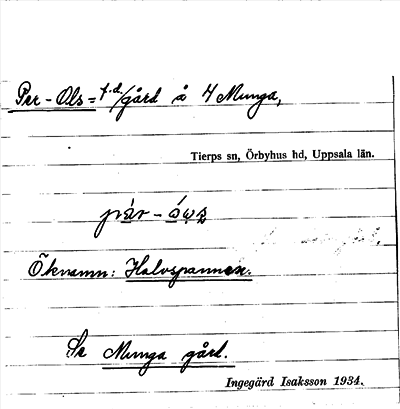 Per-Ols= f.d/gård å 4 Munga,
Tierps sn, Örbyhus hd, Uppsala län.
Öknamn: Halvspannen.
Se Munga gård.
Ingegärd Isaksson 1934.